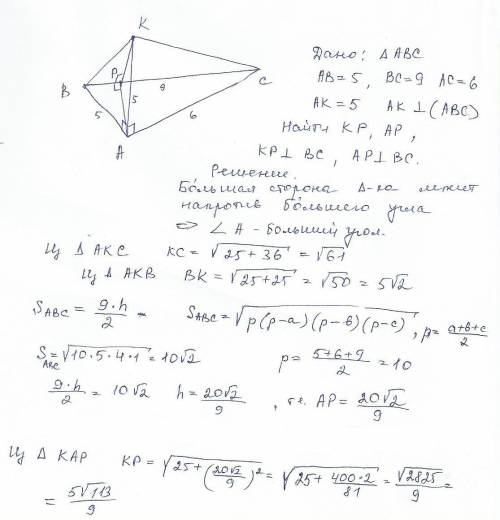 K
Дано: Δ ABC
AB = 5, BC = 9 AC = 6
AK = 5 AK ⊥ (ABC)
Найти KP, AP,
KP ⊥ BC, AP ⊥ BC.
P
9
C
B
5
5
6
A
Решение.
Бо́льшая сторона Δ-ка лежит
напротив бо́льшего угла
⇒ ∠ A - больший угол.
Из Δ AKC KC = √(25 + 36) = √61
Из Δ AKB BK = √(25+25) = √50 = 5√2
S_ABC = 9·h/2 = S_ABC = √(p(p-a)(p-в)(p-c)), p = (a+в+c)/2
S_ABC = √(10·5·4·1) = 10√2 p = (5+6+9)/2 = 10
9·h/2 = 10√2 h = 20√2/9, т.е. AP = 20√2/9
Из Δ KAP KP = √(25 + (20√2/9)²) = √(25 + 400·2/81) = √2825/9 =
= 5√113/9